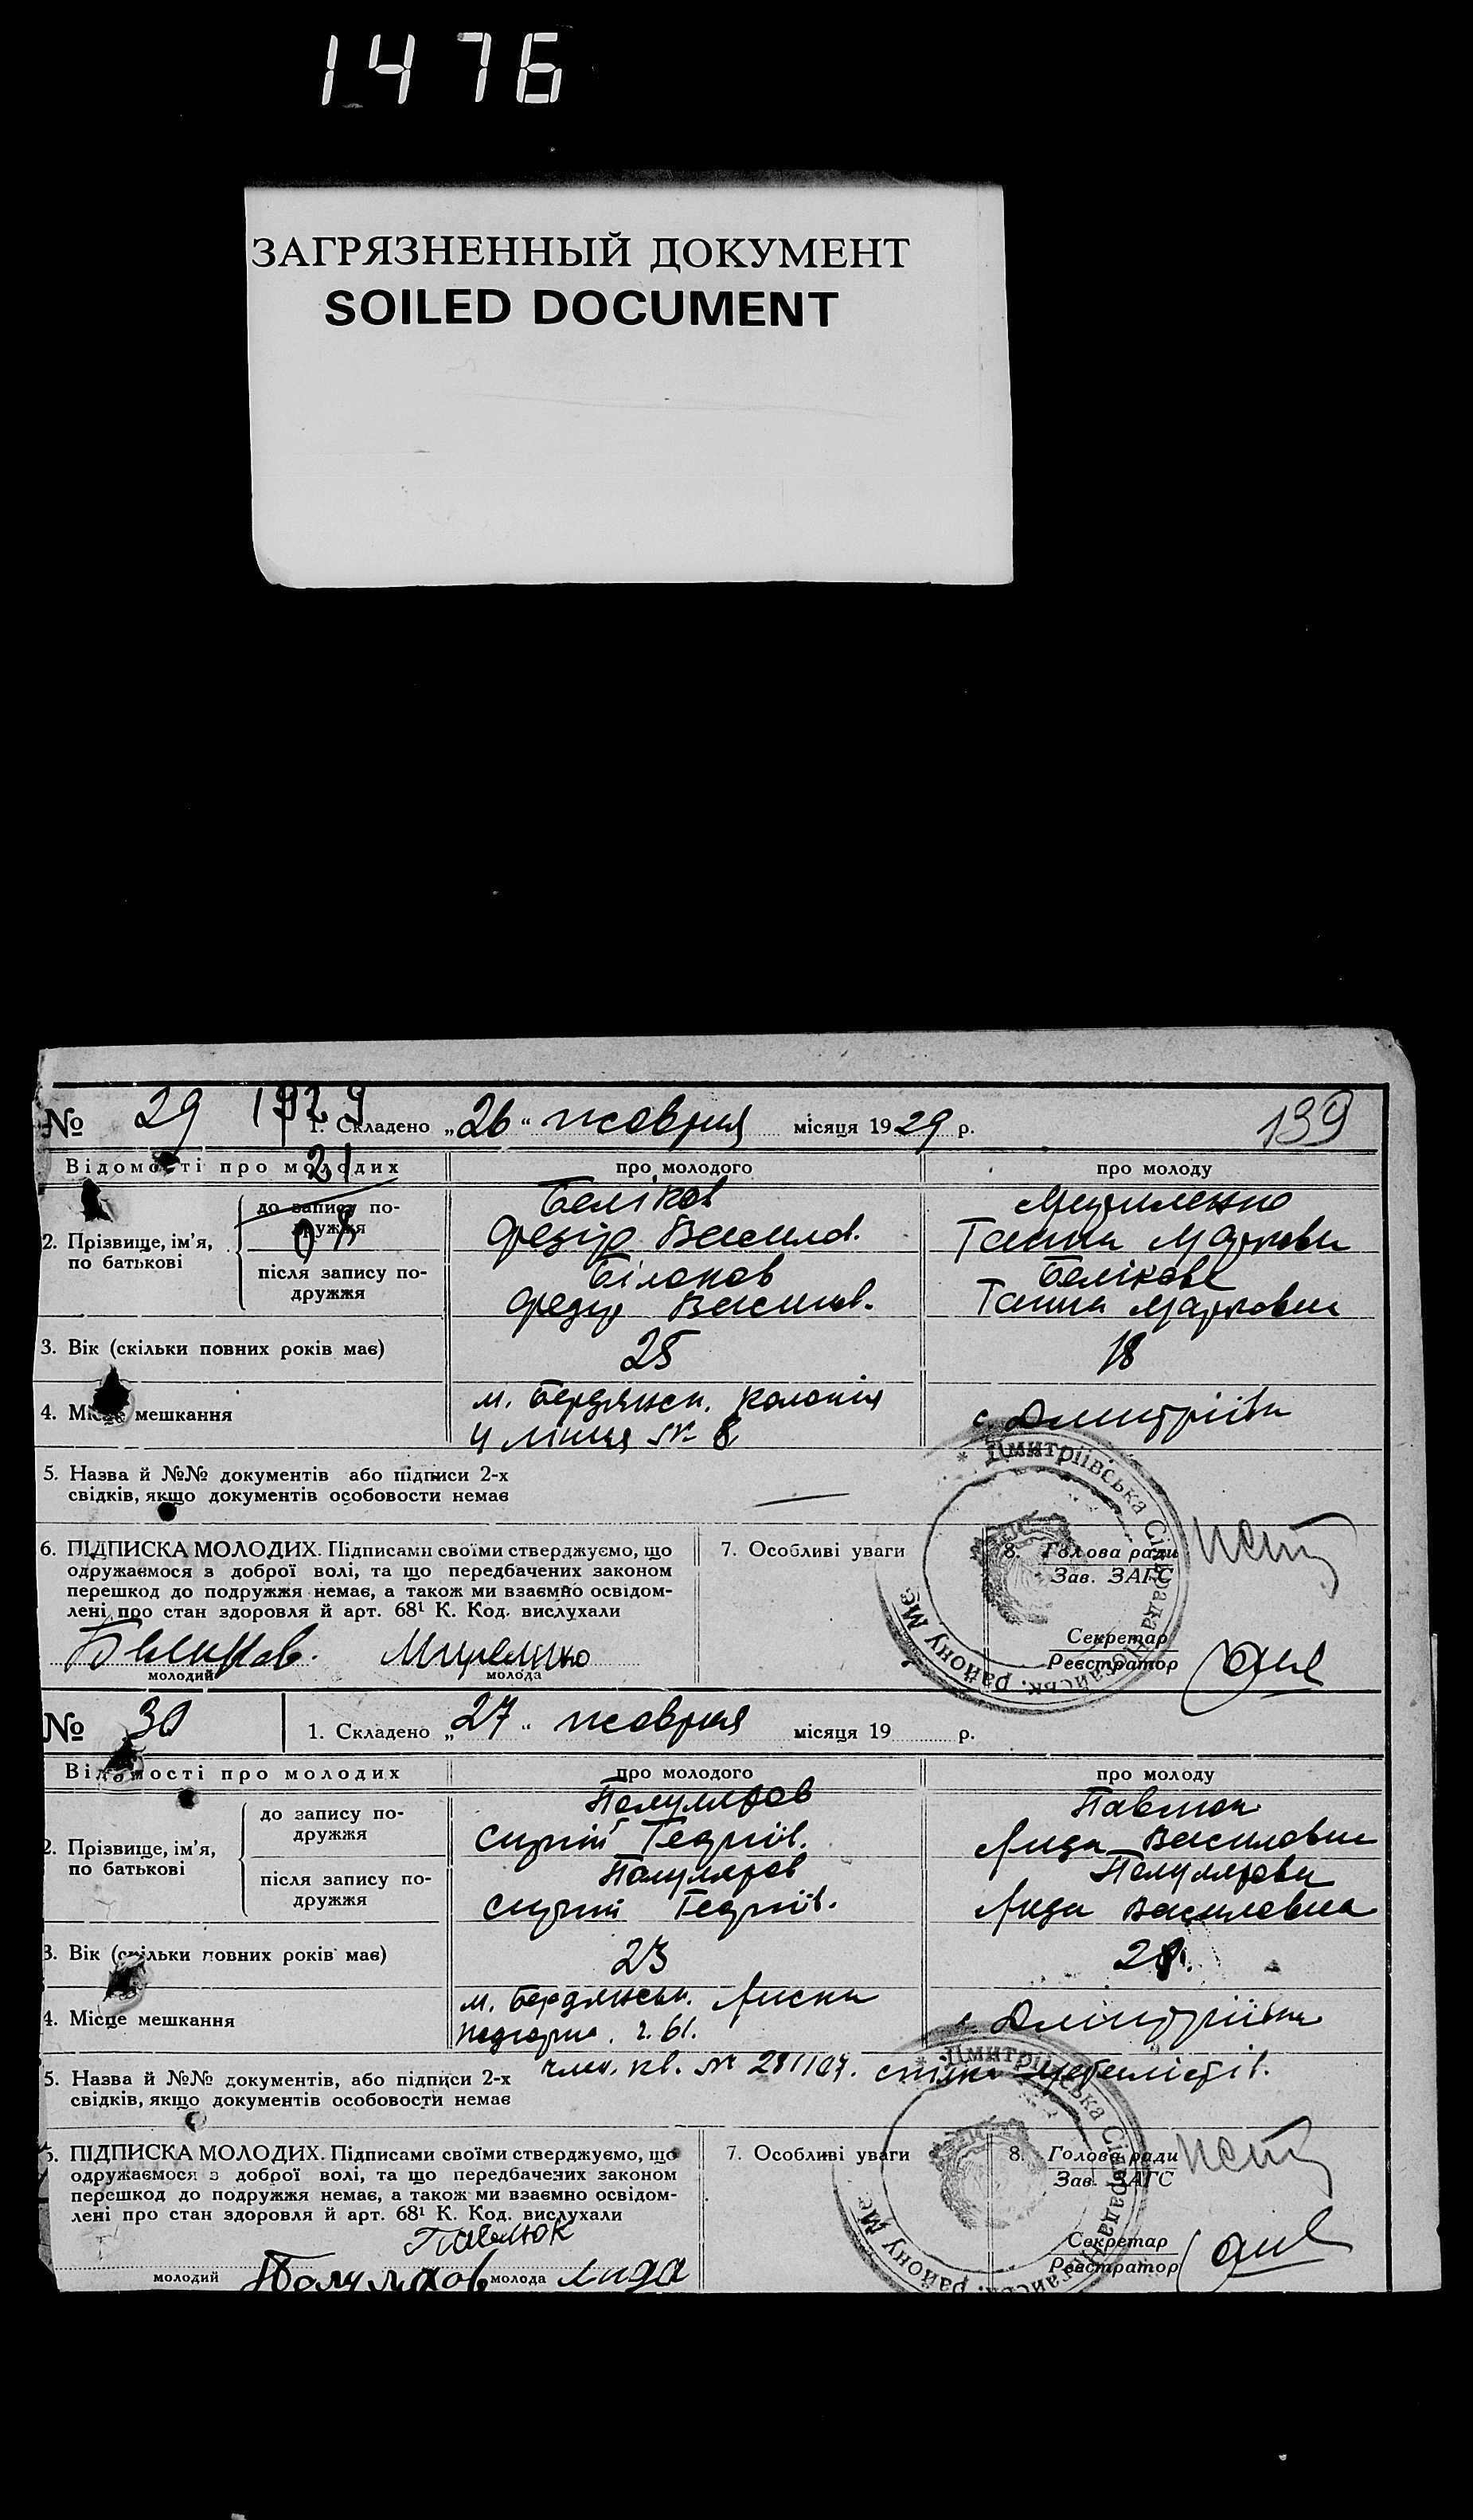 1476
ЗАГРЯЗНЕННЫЙ ДОКУМЕНТ
SOILED DOCUMENT
№ 29 1929 1. Складено „26“ жовтня місяця 1929 р. 139
Відомості про молодих 21 про молодого про молоду
2. Прізвище, ім'я, по батькові
до запису подружжя
Беліков
Федір Васильов. Ганна Маркови
після запису подружжя
Біліков Белікова
Федір Васильов. Ганна Маркович
3. Вік (скільки повних років має) 25 18
4. Місце мешкання м. Бердянськ. Колонія с. Дмитріївка
4 лінія № 8
5. Назва й №№ документів або підписи 2-х
свідків, якщо документів особовости немає —
6. ПІДПИСКА МОЛОДИХ. Підписами своїми стверджуємо, що 7. Особливі уваги 8. Голова ради
одружаємося з доброї волі, та що передбачених законом Зав. ЗАГС
перешкод до подружжя немає, а також ми взаємно освідом-
лені про стан здоров'я й арт. 68¹ К. Код. вислухали
Секретар
Реєстратор
Беликов.
молодий молода
Дмитріївська Сільрада
району Ме
№ 30 1. Складено „27“ жовтня місяця 19 р.
Відомості про молодих про молодого про молоду
2. Прізвище, ім'я, по батькові
до запису подружжя
Павлюк
Сергій Георгіїв. Лида Василовна
після запису подружжя
Сергій Георгіїв. Лида Василовна
3. Вік (скільки повних років має) 23
4. Місце мешкання м. Бердянськ. Лиски с. Дмітріївка
ч. 61.
5. Назва й №№ документів, або підписи 2-х
член. кв. № 281107.
свідків, якщо документів особовости немає
6. ПІДПИСКА МОЛОДИХ. Підписами своїми стверджуємо, що 7. Особливі уваги 8. Голова ради
одружаємося з доброї волі, та що передбачених законом Зав. ЗАГС
перешкод до подружжя немає, а також ми взаємно освідом-
лені про стан здоров'я й арт. 68¹ К. Код. вислухали
Павлюк
Секретар
Реєстратор
молодий молода Лида
Дмитріївська Сільрада
району Ме